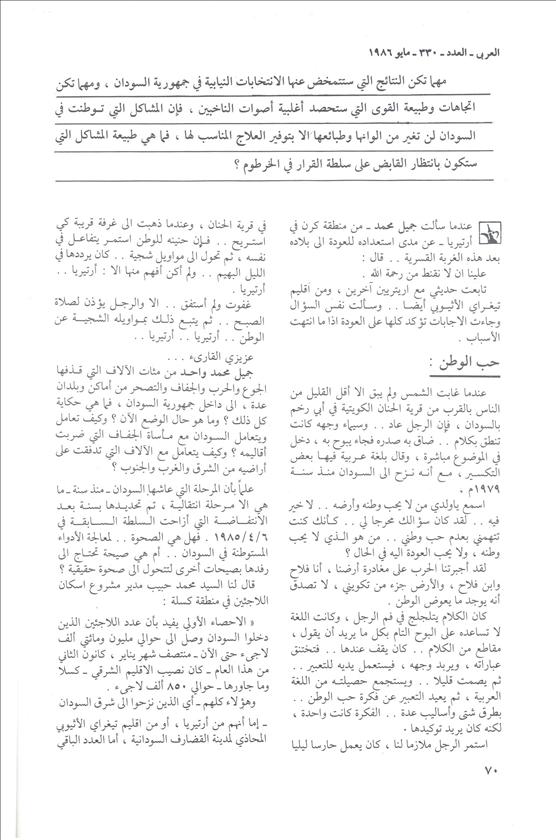 العربي ـ العدد ـ ٣٣٠ ـ مايو ١٩٨٦
مهما تكن النتائج التي ستتمخض عنها الانتخابات النيابية في جمهورية السودان ، ومهما تكن
اتجاهات وطبيعة القوى التي ستحصد أغلبية أصوات الناخبين ، فإن المشاكل التي تـوطنت في
السودان لن تغير من الوانها وطبائعها الا بتوفير العلاج المناسب لها ، فما هي طبيعة المشاكل التي
ستكون بانتظار القابض على سلطة القرار في الخرطوم ؟
عندما سألت جميل محمد ـ من منطقة كرن في
أرتيريا ـ عن مدى استعداده للعودة الى بلاده
بعد هذه الغربة القسرية . . قال :
علينا ان لا نقنط من رحمة الله .
تابعت حديثي مع اريتريين آخرين ، ومن أقليم
تيغراي الأثيوبي أيضا . . وسألت نفس السؤال
وجاءت الاجابات تؤكد كلها على العودة اذا ما انتهت
الأسباب .
حب الوطن :
عندما غابت الشمس ولم يبق الا أقل القليل من
الناس بالقرب من قرية الحنان الكويتية في أبي رخم
بالسودان ، فإن الرجل عاد . . وسيماء وجهه كانت
تنطق بكلام . . ضاق به صدره فجاء يبوح به ، دخل
في الموضوع مباشرة ، وقال بلغة عربية فيها بعض
التكسير ، مع أنـه نـزح الى السودان منذ سنـة
١٩٧٩م .
اسمع ياولدي من لا يحب وطنه وأرضه . . لا خير
فيه . . لقد كان سؤالك محرجا لي . . كـأنك كنت
تتهمني بعدم حب وطني . . من هـو الـذي لا يحب
وطنه ، ولا يحب العودة اليه في الحال ؟
لقد أجبرتنا الحرب على مغادرة أرضنا ، أنا فلاح
وابن فلاح ، والأرض جزء من تكويني ، لا تصدق
أنه يوجد ما يعوض الوطن .
كان الكلام يتلجلج في فم الرجل ، وكانت اللغة
لا تساعده على البوح التام بكل ما يريد أن يقول ،
مقاطع من الكلام . . كان يقف عندها . . فتختنق
عباراته ، ويربد وجهه ، فيستعمل يديه للتعبير . .
ثم يصمت قليلا . . ويستجمع حصيلتـه من اللغة
العربية ، ثم يعيد التعبير عن فكرة حب الوطن . .
بطرق شتى وأساليب عدة . . الفكرة كانت واحدة ،
لكنه كان يريد توكيدها .
استمر الرجل ملازما لنا ، كان يعمل حارسا ليليا
في قرية الحنان ، وعندما ذهبت الى غرفة قريبة كي
استريح . . فـإن حنينه للوطن استمـر يتفاعـل في
نفسه ، ثم تحول الى مواويل شجية . . كان يرددها في
الليل البهيم . . ولم أكن أفهم منها الا : أرتيريا . .
أرتيريا .
غفوت ولم أستفق . . الا والرجـل يؤذن لصلاة
الصبـح . . ثم يتبـع ذلـك بمـواويله الشجيـة عن
الوطن . . أرتيريا . . أرتيريا . .
عزيزي القارىء . . .
جميل محمد واحـد من مئات الآلاف التي قـذفها
الجوع والحرب والجفاف والتصحر من أماكن وبلدان
عدة ، الى داخل جمهورية السودان ، فما هي حكاية
كل ذلك ؟ وما هو حال الوضع الآن ؟ وكيف تعامل
ويتعامل السودان مع مـأساة الجفـاف التي ضربت
أقاليمه ؟ وكيف يتعامل مع الآلاف التي تدفقت على
أراضيه من الشرق والغرب والجنوب ؟
علماً بأن المرحلة التي عاشها السودان ـ منذ سنة ـ ما
هي الا مـرحلة انتقاليـة ، تم تحديـدها بسنـة بعـد
الانتفـاضـة التي أزاحت السلطـة السـابقـة في
٦ / ٤ / ١٩٨٥ . فهل هي الصحوة . . لمعالجة الأدواء
المستوطنة في السودان . . أم هي صيحة تحتـاج الى
رفدها بصيحات أخرى لتتحول الى صحوة حقيقية ؟
قال لنا السيد محمد حبيب مدير مشروع اسكان
اللاجئين في منطقة كسلة :
« الاحصاء الأولي يفيد بأن عدد اللاجئين الذين
دخلوا السودان وصل الى حوالي مليون ومائتي ألف
لاجىء حتى الآن ـ منتصف شهر يناير ، كانون الثاني
من هذا العام ـ كان نصيب الاقليم الشرقي ـ كسـلا
وما جاورها ـ حوالي ٨٥٠ ألف لاجىء .
وهؤلاء كلهم ـ أي الذين نزحوا الى شرق السودان
ـ إما أنهم من أرتيريا ، أو من اقليم تيغراي الأثيوبي
المحاذي لمدينة القضارف السودانية ، أما العدد الباقي
٧٠